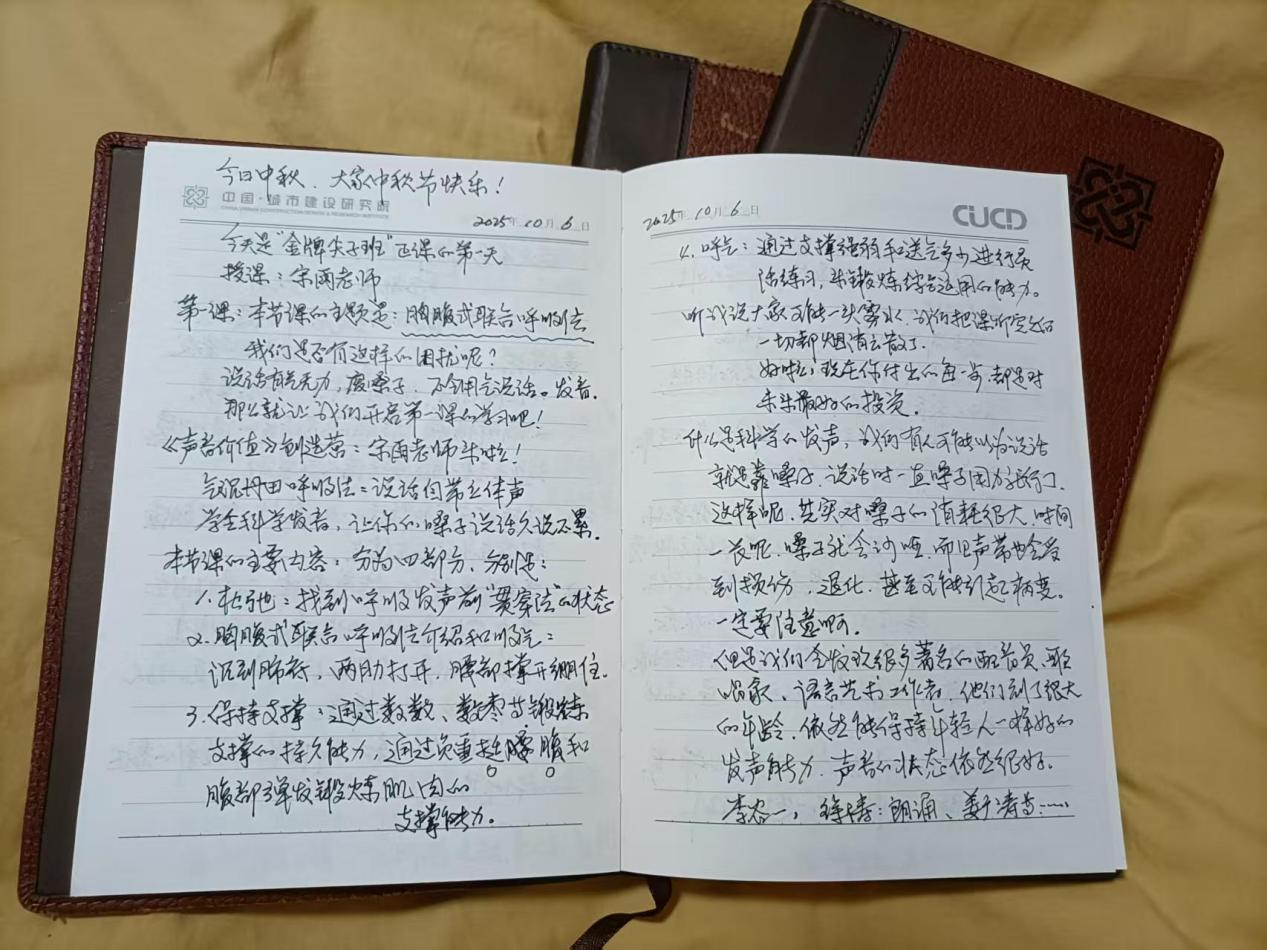 今日中秋、大家中秋节快乐！
中国·城市建设研究院
CHINA URBAN CONSTRUCTION DESIGN & RESEARCH INSTITUTE
2025年10月6日
今天是"金牌尖子班"正课的第一天
授课：宋雨老师
第一课：本节课的主题是：胸腹式联合呼吸法
我们是否有这样的困扰呢？
说话有气无力，废嗓子，不会用气说话。发音。
那么就让我们开启第一课的学习吧！
《声音价值》创造营：宋雨老师来啦！
气沉丹田呼吸法：说话自带立体声
学会科学发音，让你的嗓子说话久说不累。
本节课的主要内容：分为四部分，分别是：
1.松弛：找到呼吸发声前"贯穿法"的状态
2.胸腹式联合呼吸法介绍和吸气：
沉到肺底，两肋打开，腰部撑开绷住。
3.保持支撑：通过数数、数枣等锻炼
支撑的持久能力，通过负重起腰腹和
腹部弹发锻炼肌肉的
支撑能力。
2025年10月6日
CUCD
4.呼气：通过支撑强弱和送气多少进行灵
活练习，来锻炼综合运用的能力。
听我说大家可能一头雾水，我们把课听完后
一切都烟消云散了.
好啦；现在你付出的每一步，都是对
未来最好的投资.
什么是科学的发声，我们有人可能以为说话
就是靠嗓子，说话时一直嗓子用力就行了.
这样呢，其实对嗓子的消耗很大，时间
一长呢，嗓子就会沙哑，而且声带也会受
到损伤、退化，甚至可能引起病变。
一定要注意啊.
但是我们会发现很多著名的配音员、歌
唱家、语言艺术工作者，他们到了很大
的年龄，依然能保持年轻人一样好的
发声能力，声音的状态依然很好.
李谷一，：朗诵、姜等……